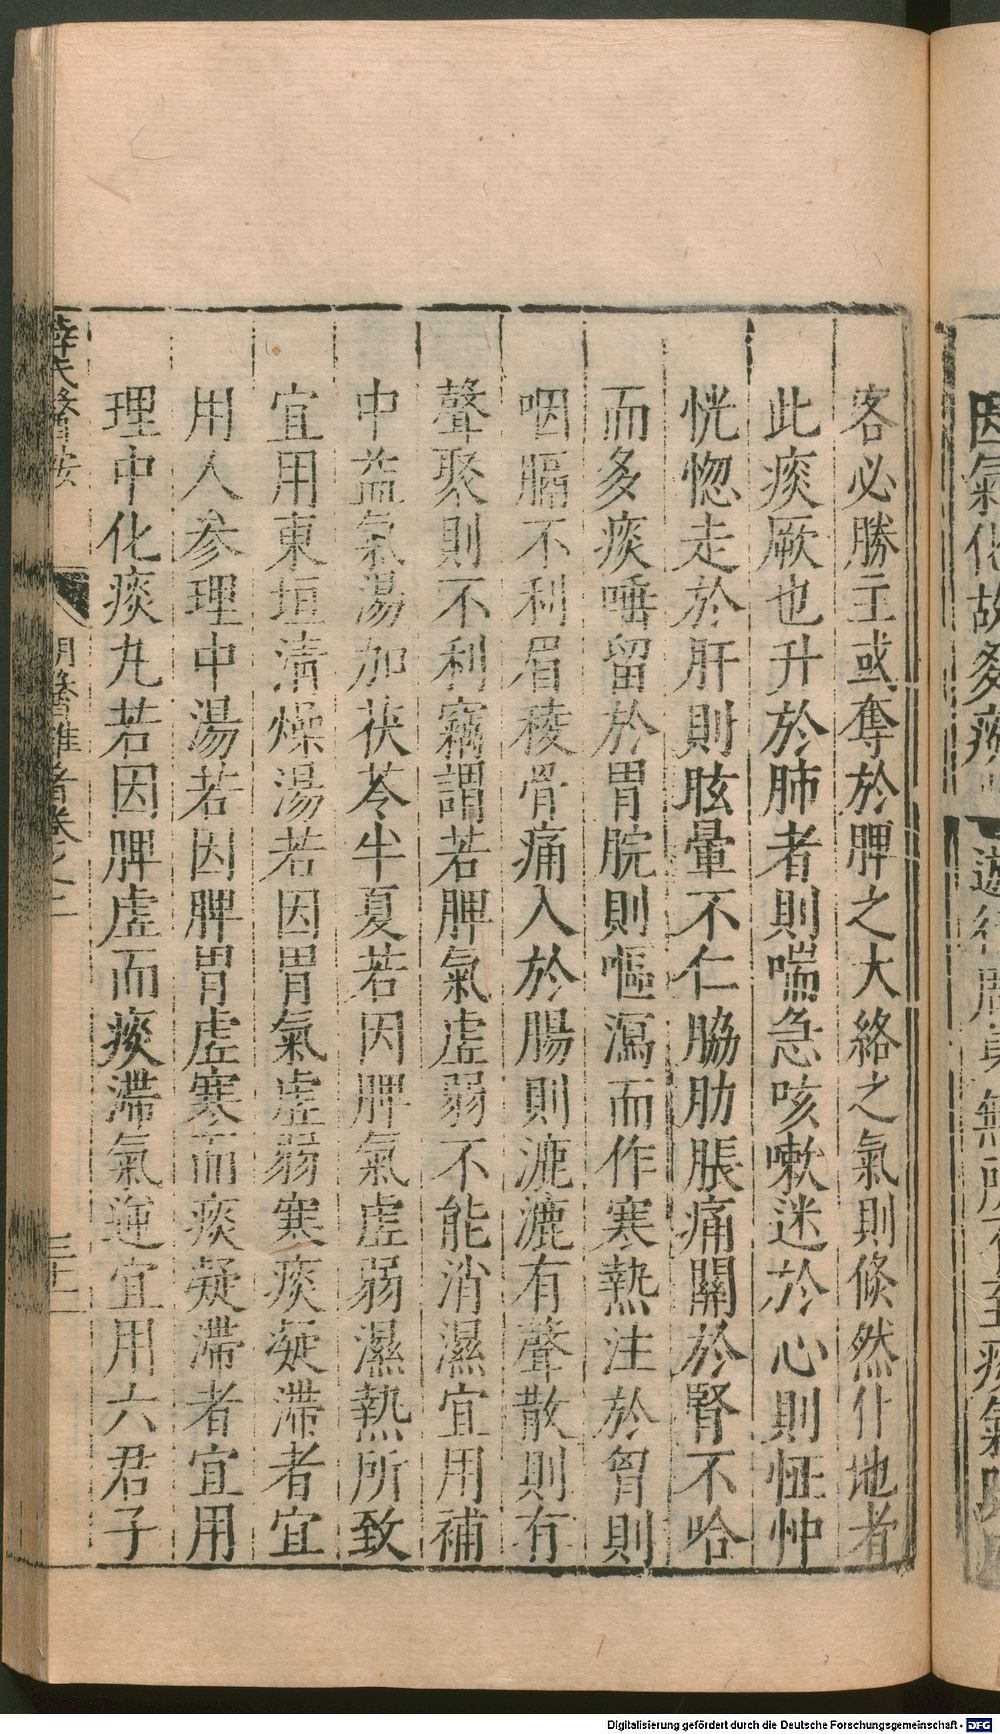 客必勝主或奪於脾之大絡之氣則倏然什地者
此痰厥也升於肺者則喘急咳嗽迷於心則怔忡
恍惚走於肝則眩暈不仁脇肋脹痛關於腎不哈
而多痰唾留於胃脘則嘔瀉而作寒熱注於胷則
咽膈不利眉稜骨痛入於腸則漉漉有聲散則有
聲聚則不利竊謂若脾氣虛弱不能消濕宜用補
中益氣湯加茯苓半夏若因脾氣虛弱濕熱所致
宜用東垣清燥湯若因胃氣虛弱寒痰凝滯者宜
用人参理中湯若因脾胃虛寒而痰凝滯者宜用
理中化痰丸若因脾虛而痰滯氣逆宜用六君子
薛氏醫按
明醫雜著卷之二
因氣化故多痰
Digitalisierung gefördert durch die Deutsche Forschungsgemeinschaft - DFG